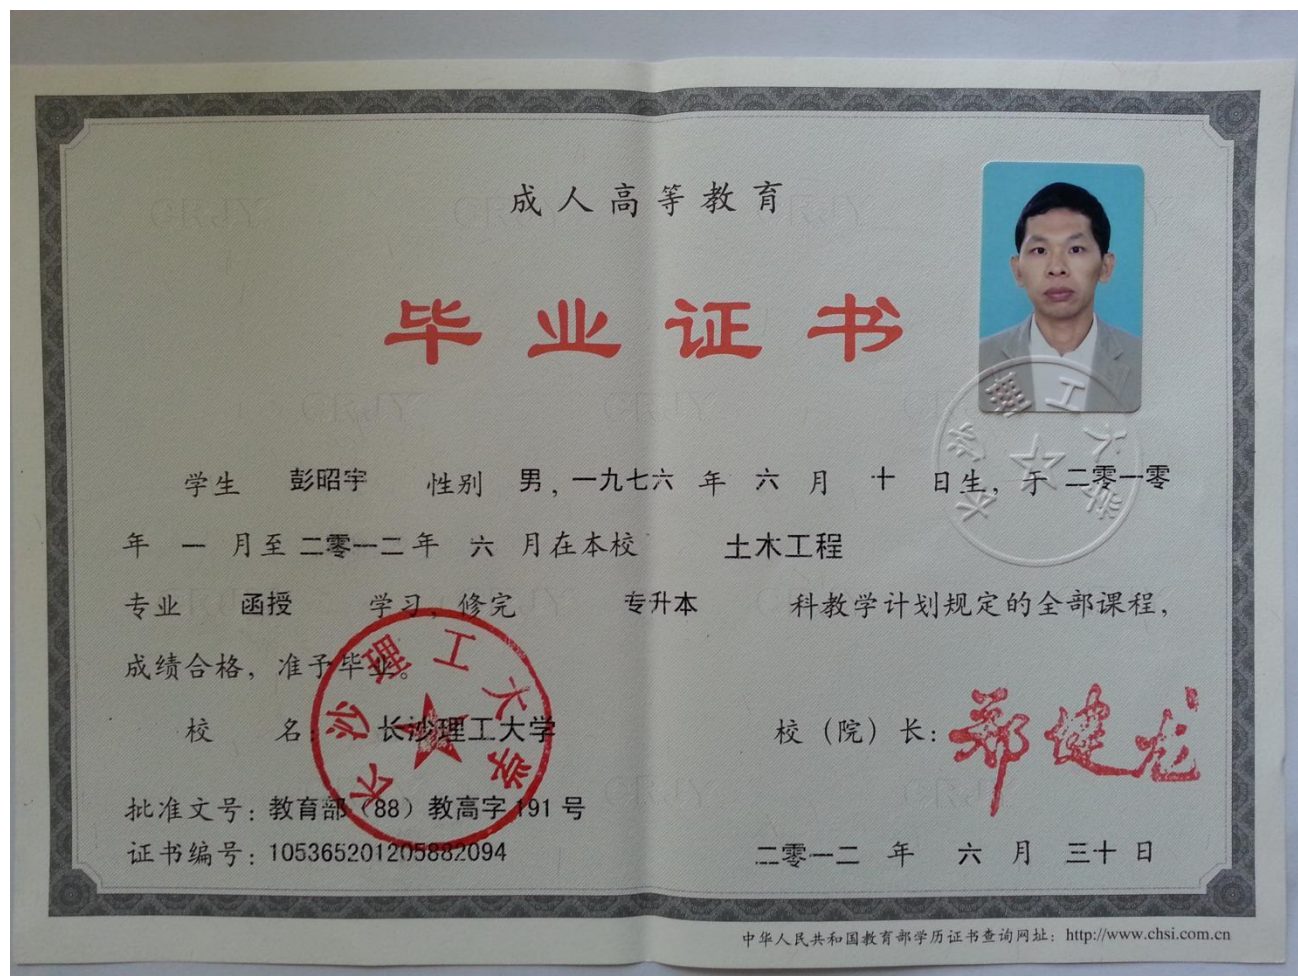 成人高等教育
毕业证书
学生 彭昭宇 性别 男，一九七六 年 六 月 十 日生，于 二零一零
年 一 月至 二零一二 年 六 月在本校 土木工程
专业 函授 学习，修完 专升本 科教学计划规定的全部课程，
成绩合格，准予毕业。
校 名：长沙理工大学
校（院）长：郑健龙
批准文号：教育部（88）教高字 191 号
证书编号：105365201205882094
二零一二 年 六 月 三十 日
长沙理工大学
长沙理工大学
中华人民共和国教育部学历证书查询网址：http://www.chsi.com.cn